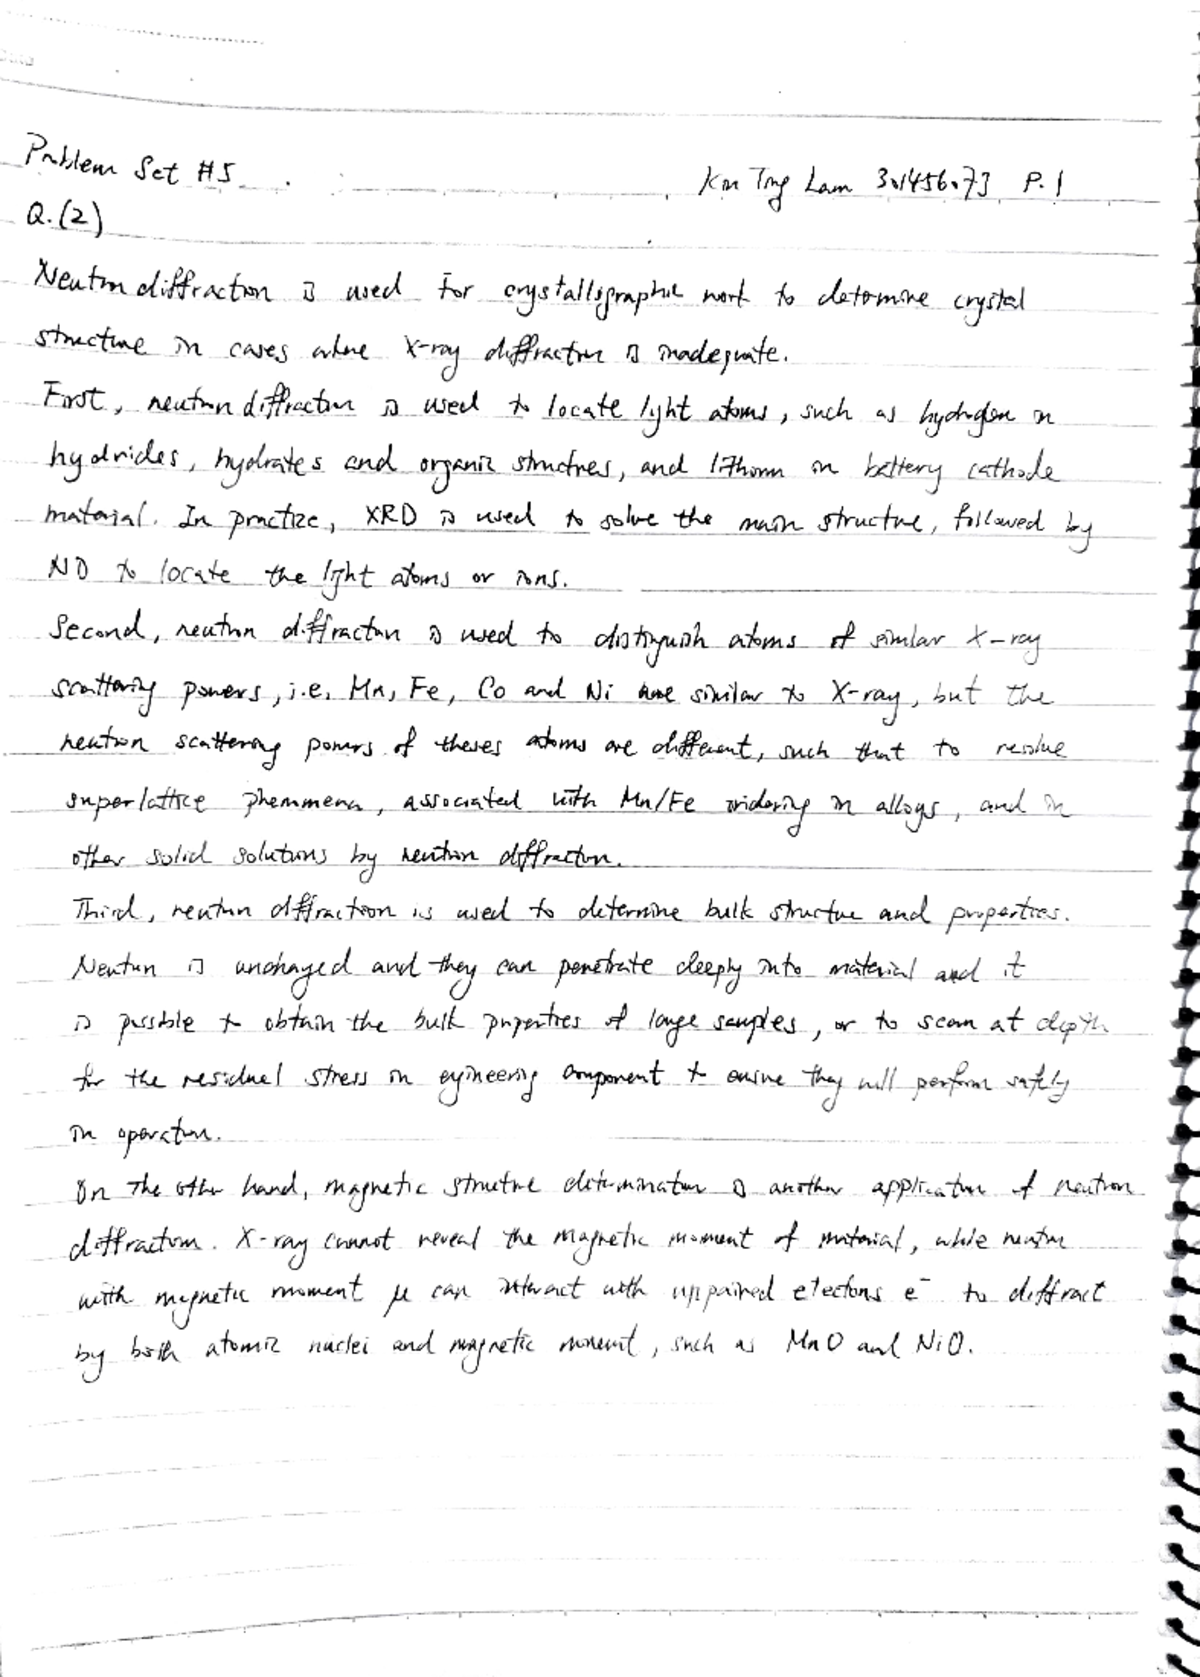 Problem Set #5
Kin Ting Lam 301456073 P.1
Q.(2)
Neutron diffraction is used for crystallographic work to determine crystal
structure in cases where X-ray diffraction is inadequate.
First, neutron diffraction is used to locate light atoms, such as hydrogen in
hydrides, hydrates and organic structures, and lithium in battery cathode
material. In practice, XRD is used to solve the main structure, followed by
ND to locate the light atoms or ions.
Second, neutron diffraction is used to distinguish atoms of similar X-ray
scattering powers, i.e. Mn, Fe, Co and Ni are similar to X-ray, but the
neutron scattering powers of theses atoms are different, such that to resolve
superlattice phenomena, associated with Mn/Fe ordering in alloys, and in
other solid solutions by neutron diffraction.
Third, neutron diffraction is used to determine bulk structure and properties.
Neutron is uncharged and they can penetrate deeply into material and it
is possible to obtain the bulk properties of large samples, or to scan at depth
for the residual stress in engineering component to ensure they will perform safely
in operation.
On the other hand, magnetic structure determination is another application of neutron
diffraction. X-ray cannot reveal the magnetic moment of material, while neutron
with magnetic moment μ can interact with unpaired electons e⁻ to diffract
by both atomic nuclei and magnetic moment, such as MnO and NiO.